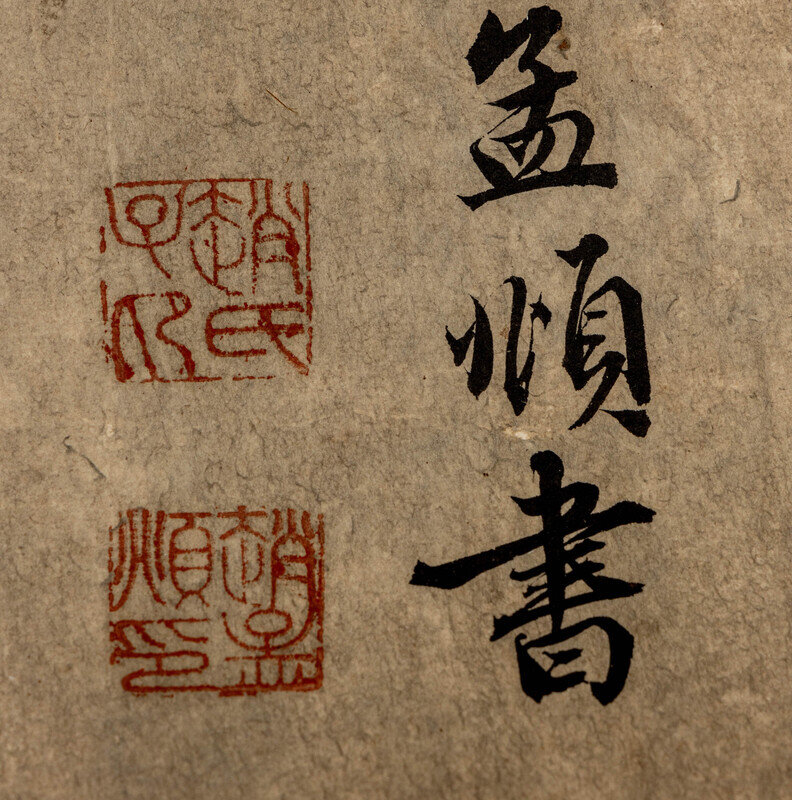 孟頫書
趙氏子昂
趙孟頫印